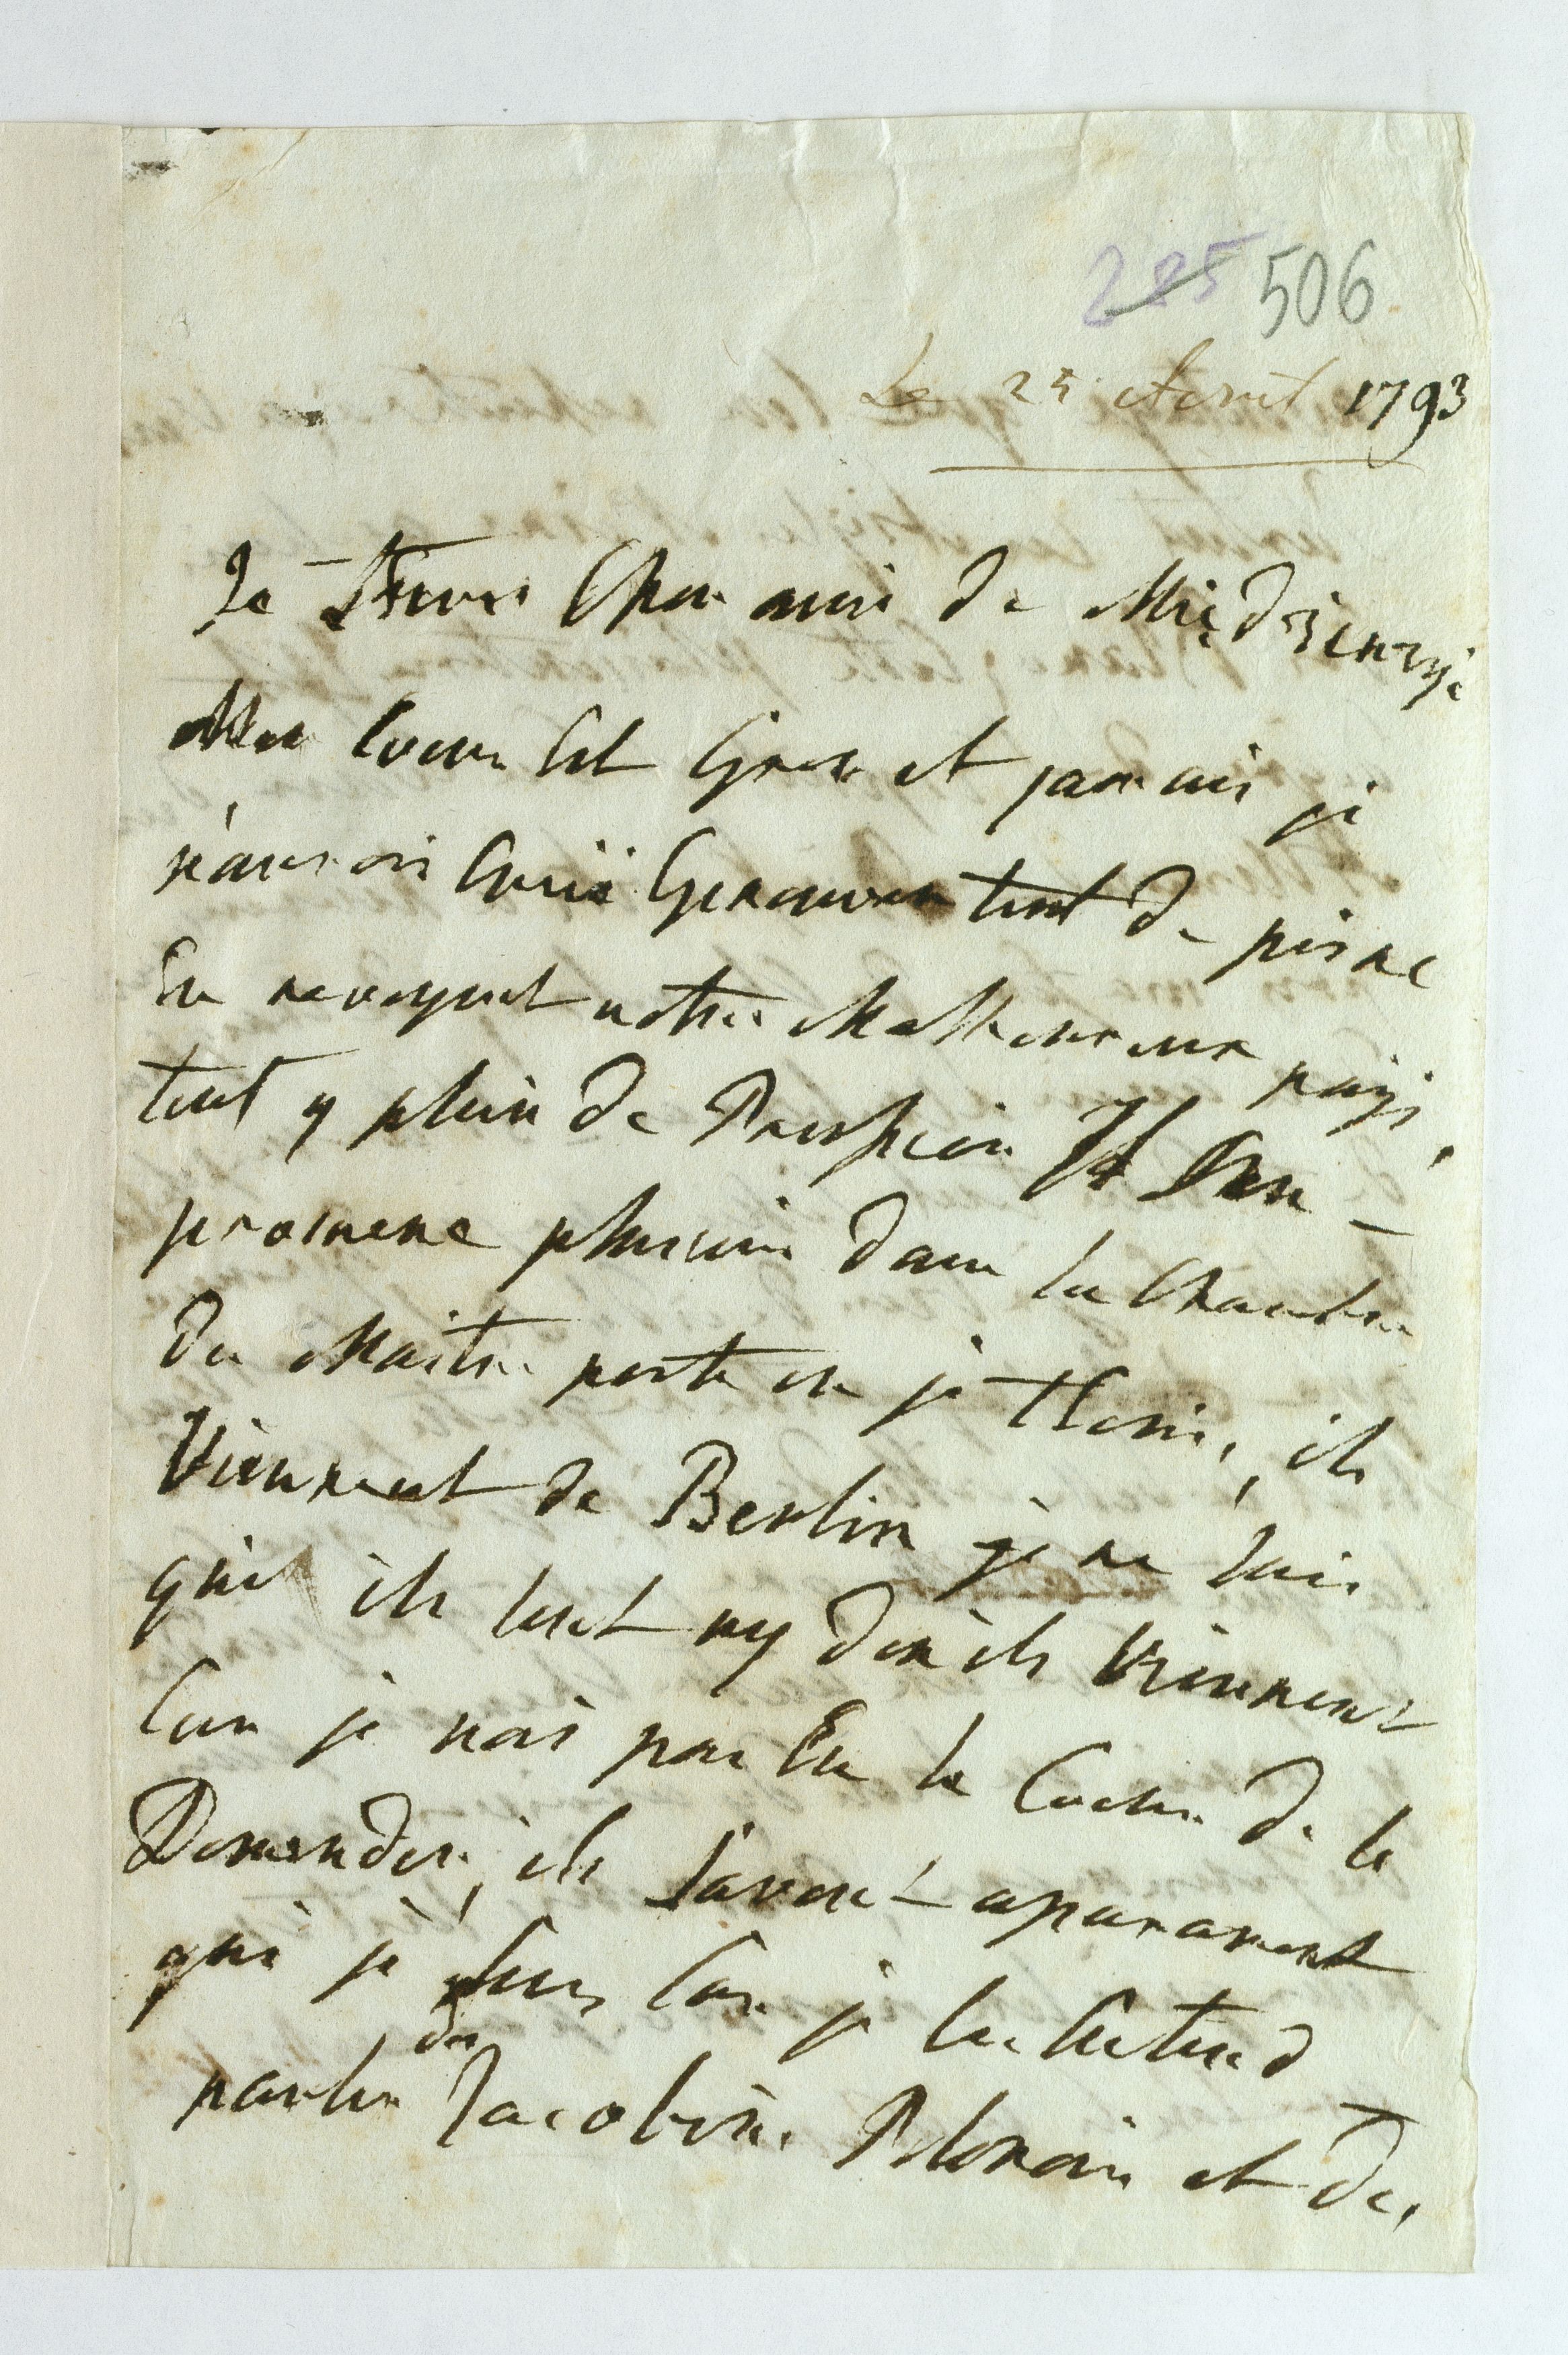 225 506
Le 25 Avril 1793
Je Cher ami de Międzierzyc
Mon Coeur Est Gros et jamais je
n'aurois Crué Eprouver tant de peine
En revoyent notre Malheureux païs,
tout y plein de Prussien Il s'en
promene plusieurs dans la Chambre
du Maitre poste ou je t'Ecris, ils
Viennent de Berlin je ne sais
qui ils sont ny d'ou ils Viennent
Car je n'ais pas Eu le Coeur de le
Demander, ils savent aparament
qui je suis Car je les Entend
parler des Jacobins Polonais et des